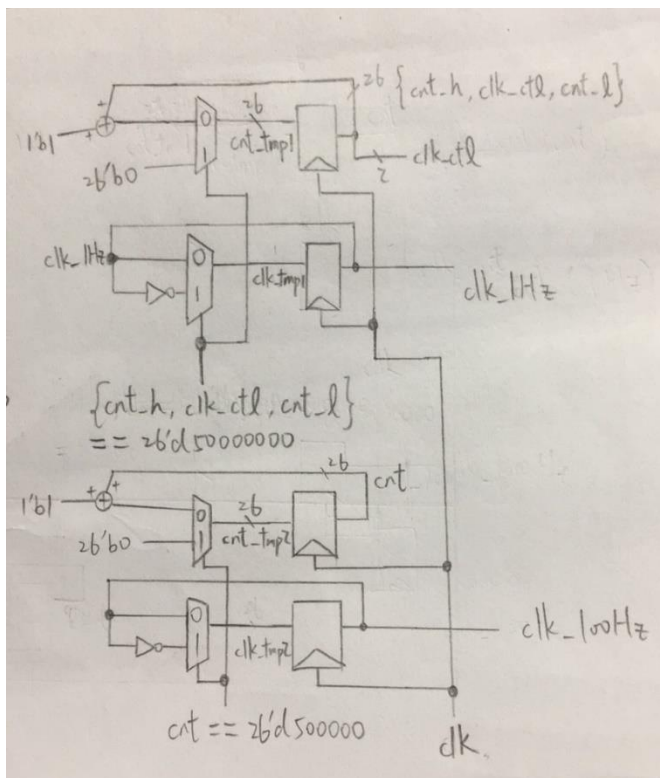 26 {cnt_h, clk_ctl, cnt_l}
+
+
1'b1
0
26
cnt_tmp1
2
clk_ctl
26'b0
1
clk_1Hz
0
1
clk_tmp1
clk_1Hz
{cnt_h, clk_ctl, cnt_l}
== 26'd50000000
26
cnt
1'b1
+
+
0
26
cnt_tmp2
26'b0
1
0
1
clk_tmp2
clk_100Hz
cnt == 26'd500000
clk